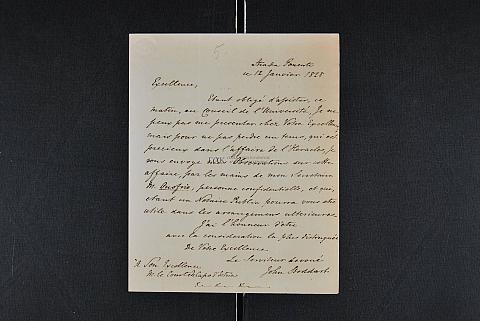 Strada Ponente
ce 12 Janvier 1828
Excellence,
Etant obligé d'assister, ce
matin, au Conseil de l'Université, Je ne
peux pas me presenter chez Votre Excellence
mais pour ne pas perdre un tems, qui est
precieux dans l'affaire de l'Heraclés, je
vous envoye mes Observations sur cette
affaire, par les mains de mon Secretaire
M. Onofrio, personne confidentielle, et qui,
etant un Notaire Public pourra vous etre
utile dans les arrangemens ulterieures.
J'ai l'honneur d'etre
avec la consideration la plus distinguée
De Votre Excellence
Le Serviteur devoué
John Stoddart
A Son Excellence
M. le Comte Capo d'Istria